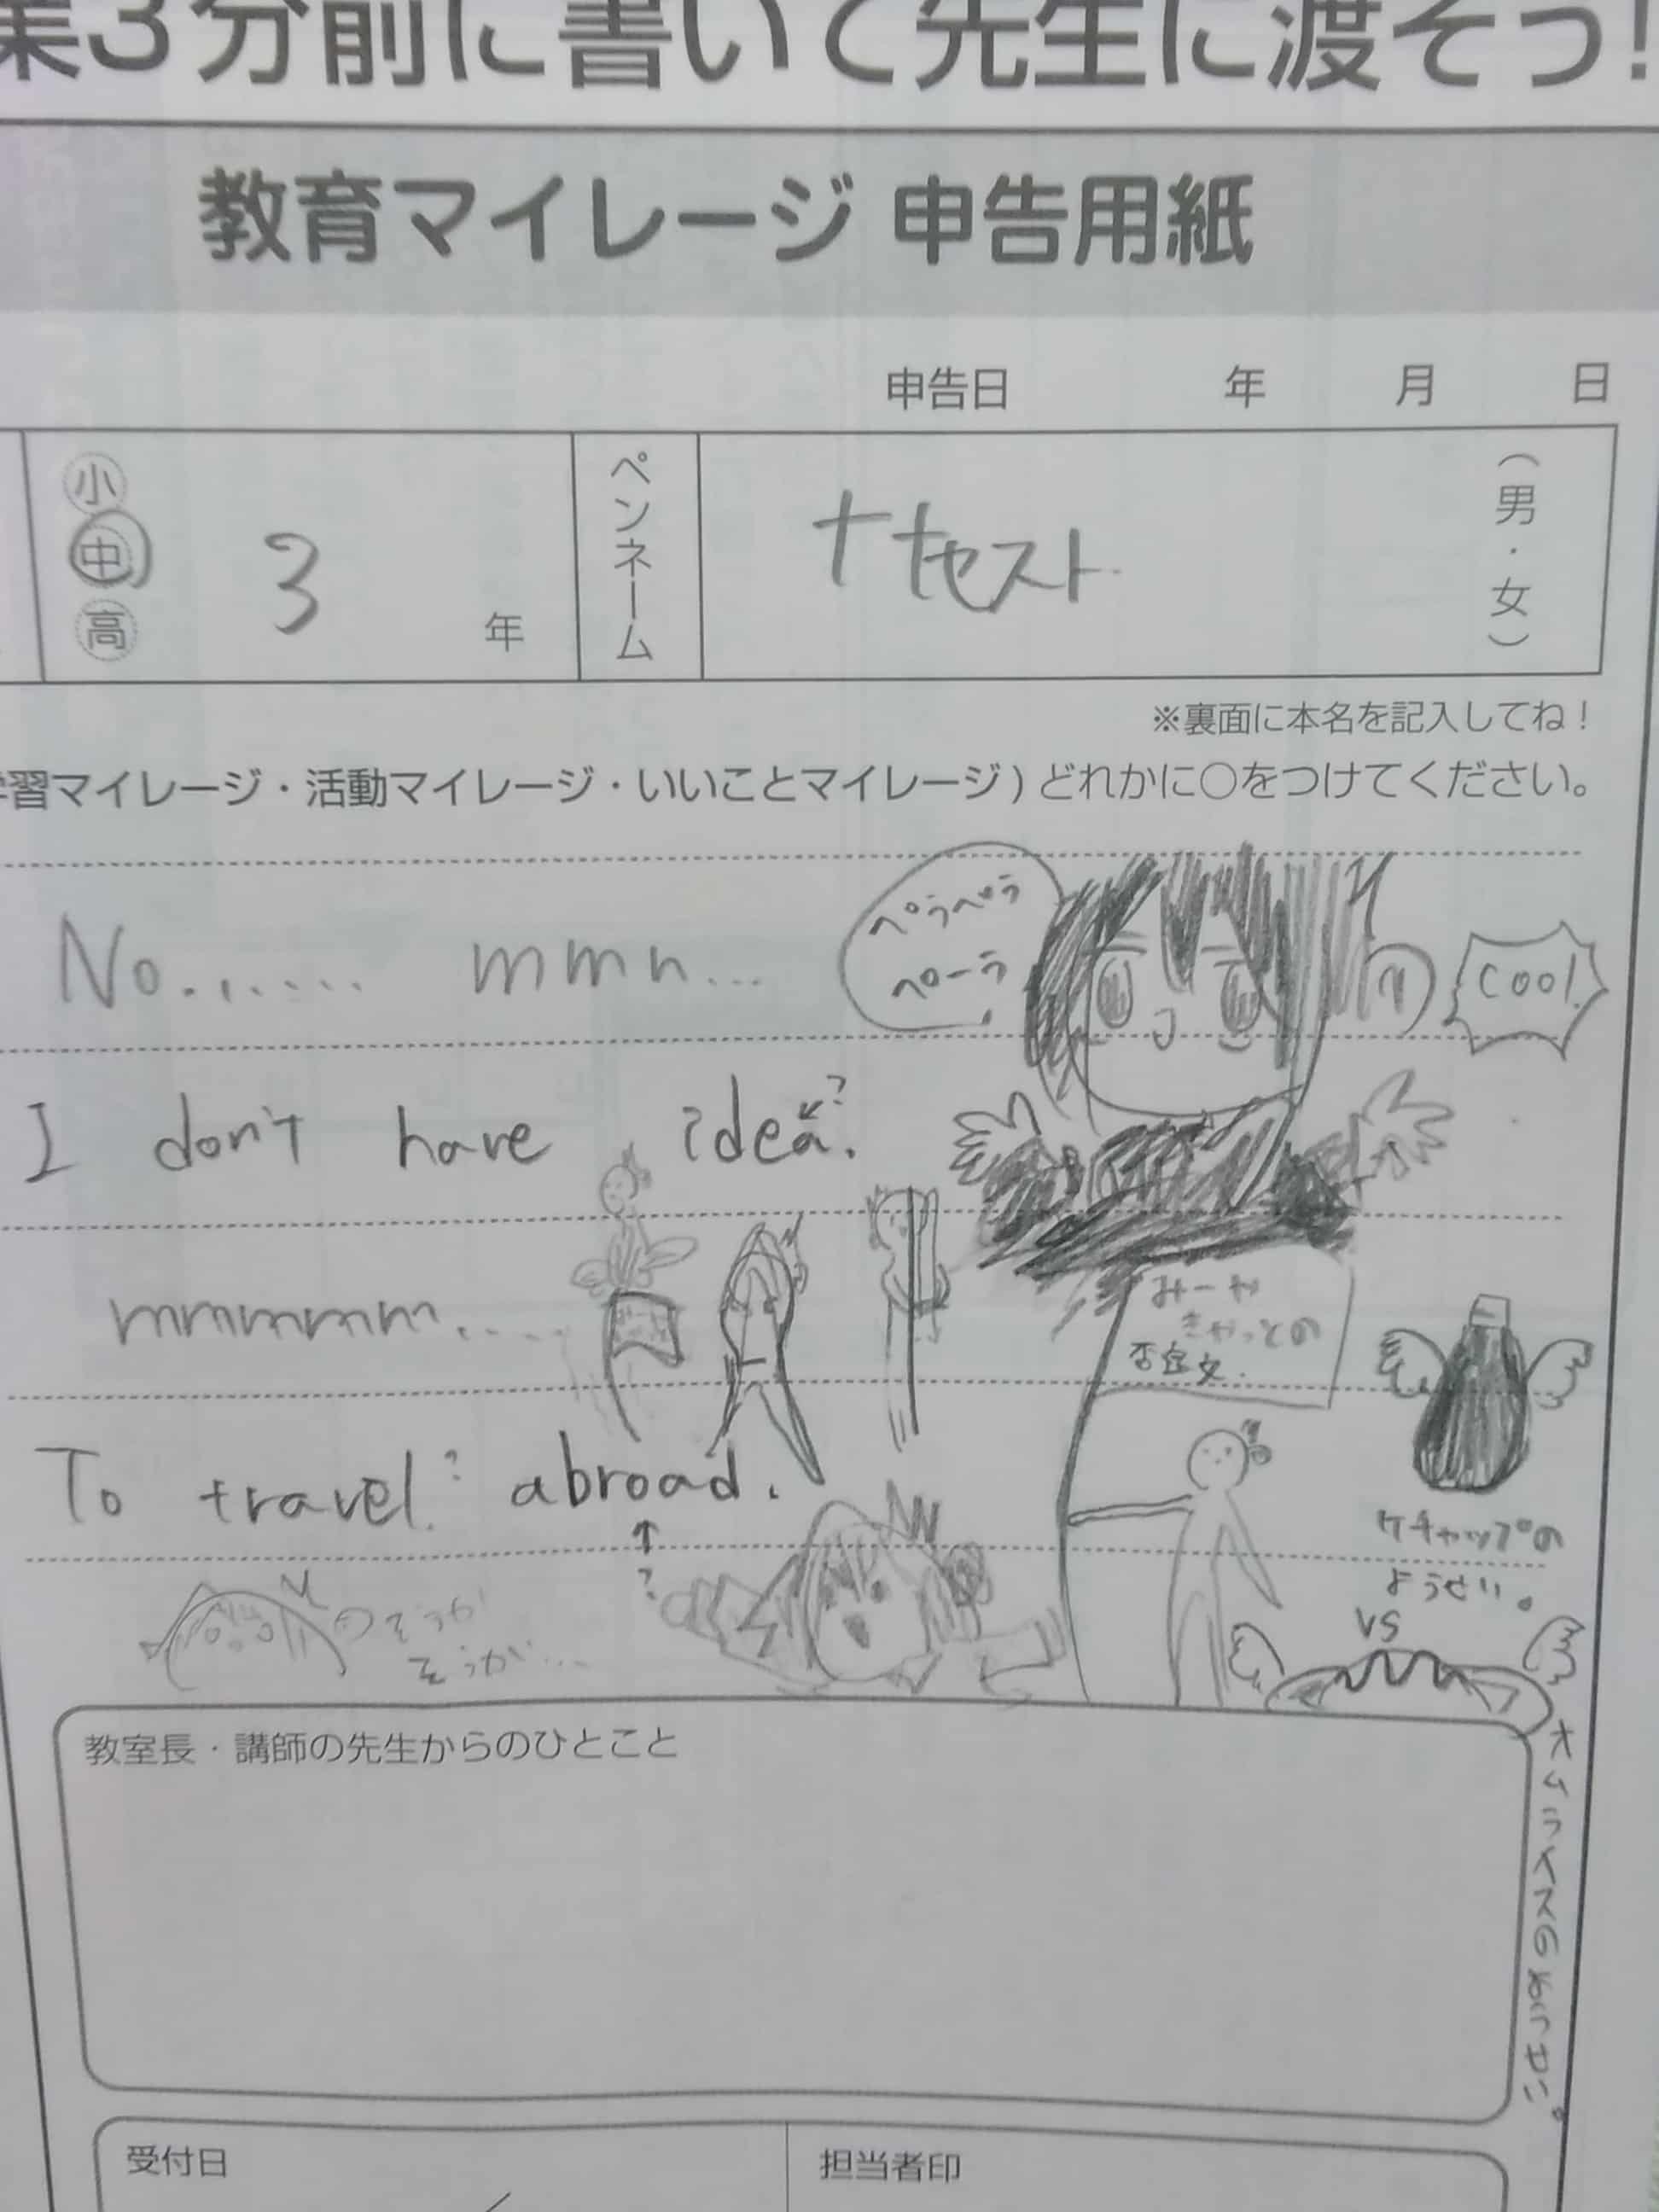 業3分前に書いて先生に渡そう!
教育マイレージ 申告用紙
申告日 年 月 日
小
中
高
3 年
ペンネーム
ナナセスト
(男・女)
※裏面に本名を記入してね!
学習マイレージ・活動マイレージ・いいことマイレージ) どれかに○をつけてください。
No....... mmn...
ペラペラ
ペーラ
cool
I don't have idea.
?
mmmmmm.....
みーや
きゃっとの
否定文.
To travel. abroad.
?
?
ケチャップの
ようせい。
VS
そうか
そうか...
教室長・講師の先生からのひとこと
受付日
担当者印